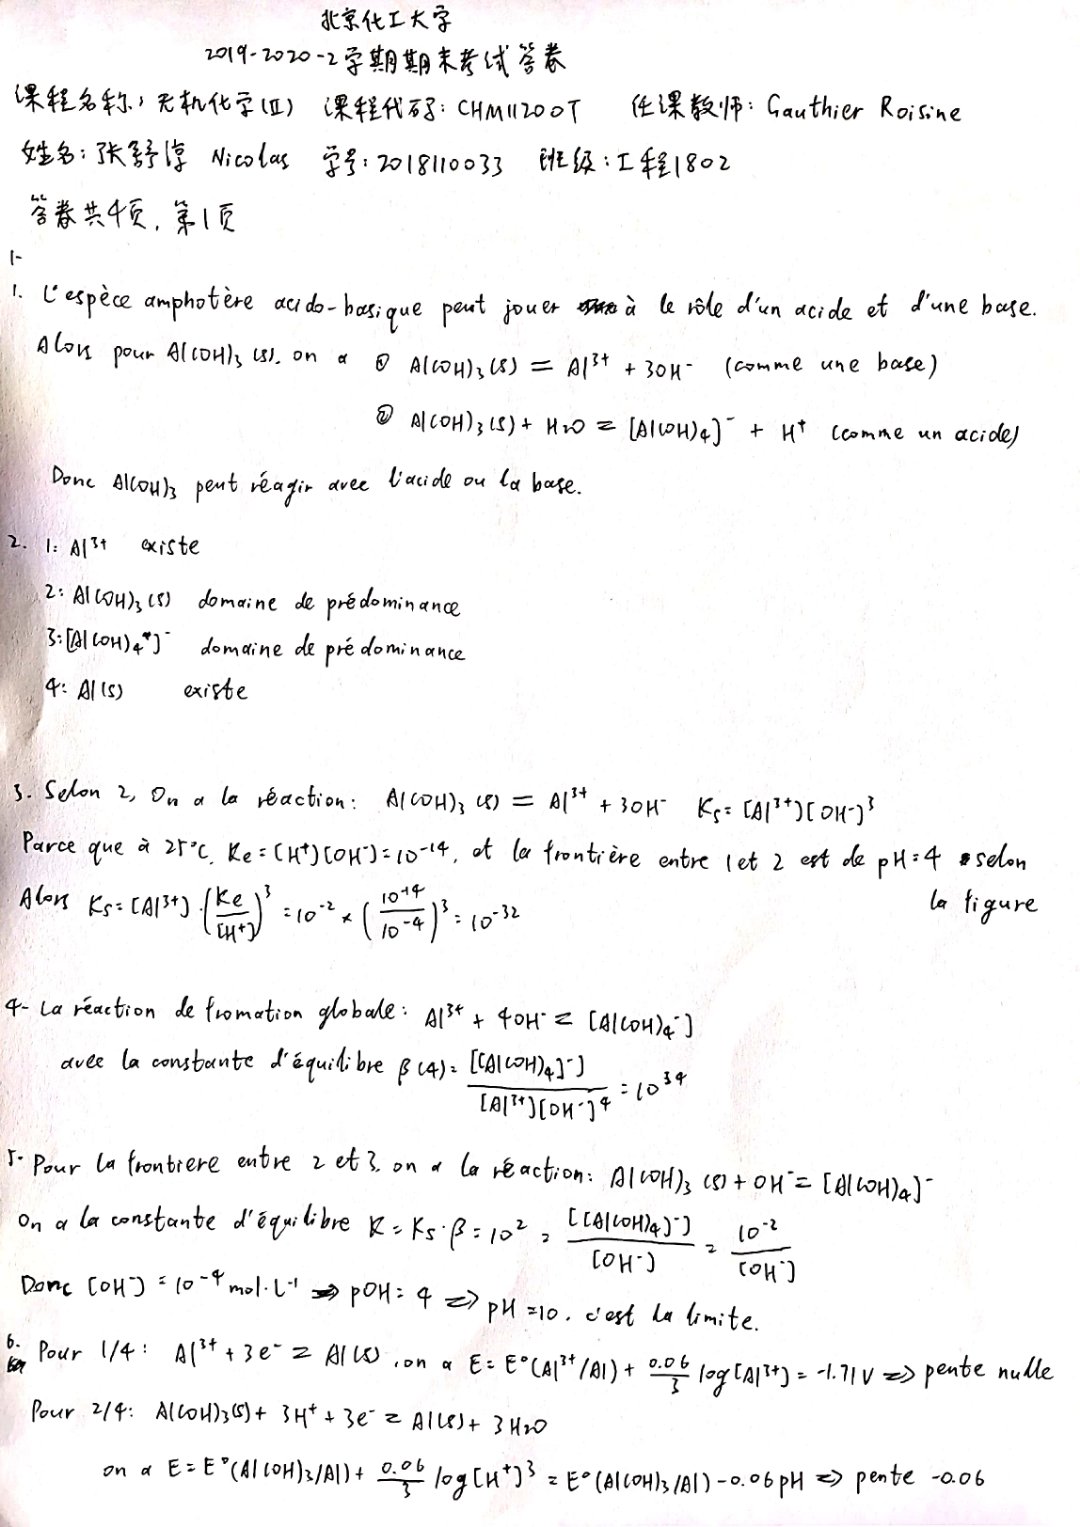 北京化工大学
2019-2020-2学期期末考试答卷
课程名称：无机化学(II) 课程代码：CHM11200T 任课教师：Gauthier Roisine
姓名：张舒淳 Nicolas 学号：2018110033 班级：工程1802
答卷共4页，第1页
1-
1. L'espèce amphotère acido-basique peut jouer à le rôle d'un acide et d'une base.
Alors pour Al(OH)₃ (s), on a ① Al(OH)₃(s) = Al³⁺ + 3OH⁻ (comme une base)
② Al(OH)₃(s) + H₂O = [Al(OH)₄]⁻ + H⁺ (comme un acide)
Donc Al(OH)₃ peut réagir avec l'acide ou la base.
2. 1: Al³⁺ existe
2: Al(OH)₃(s) domaine de prédominance
3: [Al(OH)₄]⁻ domaine de prédominance
4: Al(s) existe
3. Selon 2, On a la réaction: Al(OH)₃ (s) = Al³⁺ + 3OH⁻ Ks = [Al³⁺][OH⁻]³
Parce que à 25°C, Ke = [H⁺][OH⁻] = 10⁻¹⁴, et la frontière entre 1 et 2 est de pH=4 selon
la figure
Alors Ks = [Al³⁺]·(Ke/[H⁺])³ = 10⁻² × (10⁻¹⁴/10⁻⁴)³ = 10⁻³²
4- La réaction de fromation globale: Al³⁺ + 4OH⁻ = [Al(OH)₄⁻]
avec la constante d'équilibre β(4) = [[Al(OH)₄]⁻]/[Al³⁺][OH⁻]⁴ = 10³⁴
5- Pour la frontiere entre 2 et 3, on a la réaction: Al(OH)₃ (s) + OH⁻ = [Al(OH)₄]⁻
On a la constante d'équilibre K = Ks·β = 10² = [[Al(OH)₄]⁻]/[OH⁻] = 10⁻²/[OH⁻]
Donc [OH⁻] = 10⁻⁴ mol·L⁻¹ ⇒ pOH = 4 ⇒ pH = 10, c'est la limite.
6. Pour 1/4: Al³⁺ + 3e⁻ = Al(s), on a E = E°(Al³⁺/Al) + 0.06/3 log[Al³⁺] = -1.71V ⇒ pente nulle
Pour 2/4: Al(OH)₃(s) + 3H⁺ + 3e⁻ = Al(s) + 3H₂O
on a E = E°(Al(OH)₃/Al) + 0.06/3 log[H⁺]³ = E°(Al(OH)₃/Al) - 0.06pH ⇒ pente -0.06